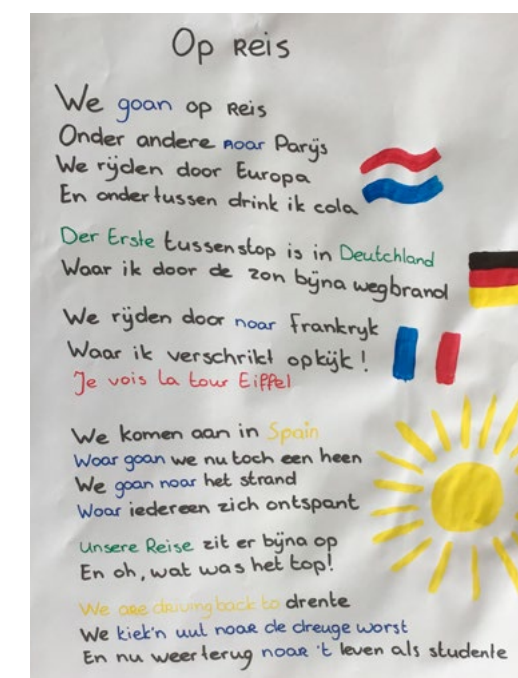 Op Reis
We goan op Reis
Onder andere noar Parijs
We rijden door Europa
En ondertussen drink ik cola
Der Erste tussenstop is in Deutchland
Waar ik door de zon bijna wegbrand
We rijden door noar Frankryk
Waar ik verschrikt opkijk!
Je vois la tour Eiffel
We komen aan in Spain
Woar goan we nu toch een heen
We goan noar het strand
Woar iedereen zich ontspant
Unsere Reise zit er bijna op
En oh, wat was het top!
We are driving back to drente
We kiek'n uut noar de dreuge worst
En nu weer terug noar 't leven als studente